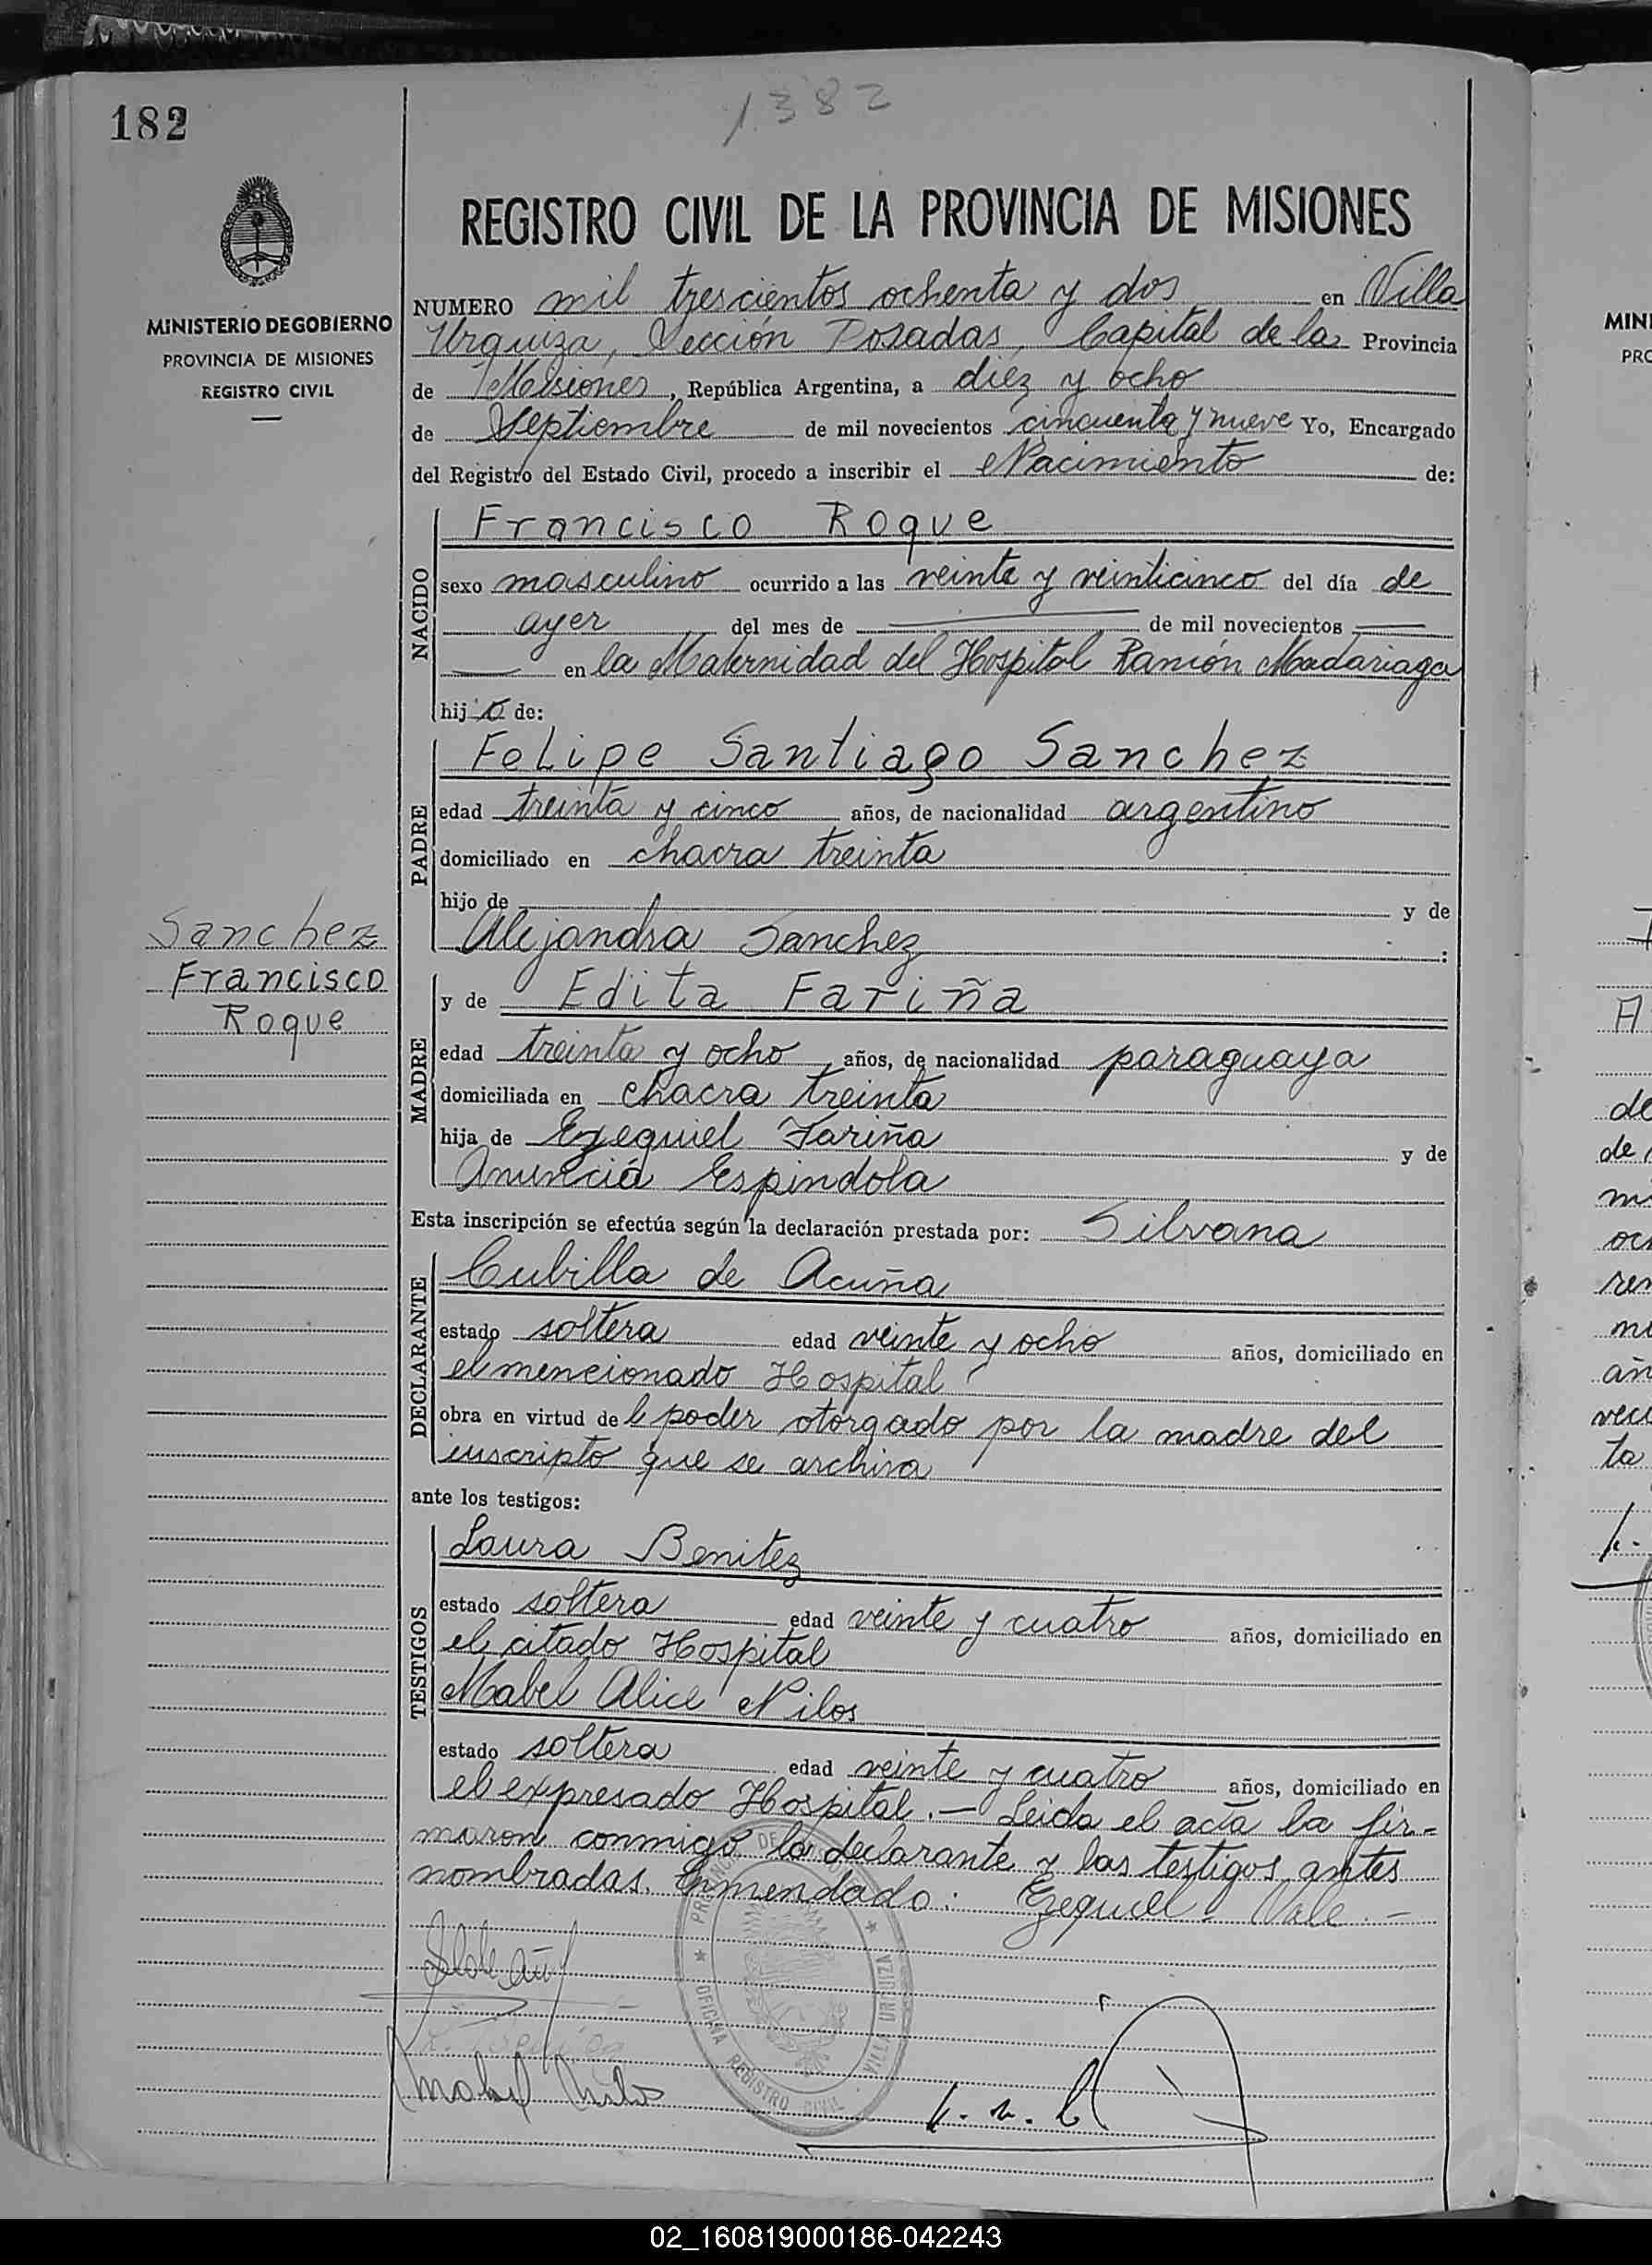 182
1382
MINISTERIO DE GOBIERNO
PROVINCIA DE MISIONES
REGISTRO CIVIL
REGISTRO CIVIL DE LA PROVINCIA DE MISIONES
NUMERO mil trescientos ochenta y dos en Villa
Urquiza, Sección Posadas, Capital de la Provincia
de Misiones, República Argentina, a diez y ocho
de Septiembre de mil novecientos cincuenta y nueve Yo, Encargado
del Registro del Estado Civil, procedo a inscribir el Nacimiento de:
NACIDO
Francisco Roque
sexo masculino ocurrido a las veinte y veinticinco del día de
ayer del mes de — de mil novecientos —
— en la Maternidad del Hospital Ramón Madariaga
hijo de:
PADRE
Felipe Santiago Sanchez
edad treinta y cinco años, de nacionalidad argentino
domiciliado en chacra treinta
hijo de y de
Alejandra Sanchez :
Sanchez
Francisco
Roque
MADRE
y de Edita Fariña
edad treinta y ocho años, de nacionalidad paraguaya
domiciliada en chacra treinta
hija de Ezequiel Fariña y de
Anuncia Espindola
Esta inscripción se efectúa según la declaración prestada por: Silvana
DECLARANTE
Cubilla de Acuña
estado soltera edad veinte y ocho años, domiciliado en
el mencionado Hospital
obra en virtud del poder otorgado por la madre del
inscripto que se archiva
ante los testigos:
TESTIGOS
Laura Benitez
estado soltera edad veinte y cuatro años, domiciliado en
el citado Hospital
Mabel Alice Nilos
estado soltera edad veinte y cuatro años, domiciliado en
el expresado Hospital.— Leida el acta la fir-
maron conmigo la declarante y las testigos antes
nombradas. Enmendado: Ezequiel. Vale.—
OFICINA REGISTRO CIVIL VILLA URQUIZA
MINI
PRO
02_160819000186-042243